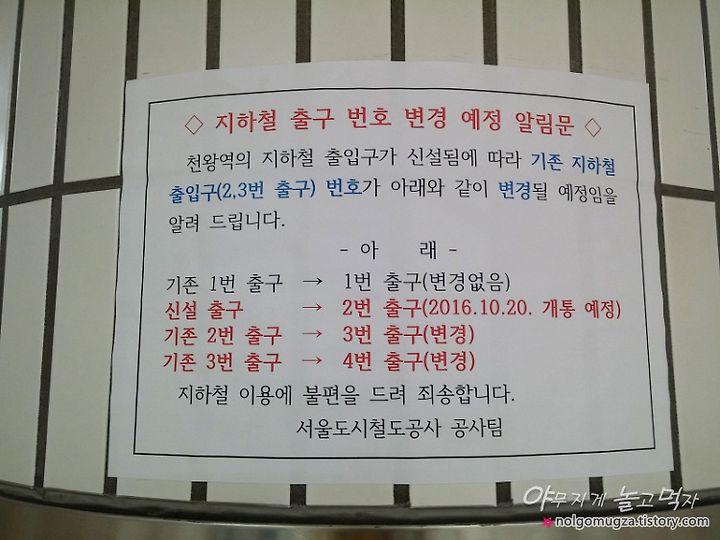 ◇ 지하철 출구 번호 변경 예정 알림문 ◇
천왕역의 지하철 출입구가 신설됨에 따라 기존 지하철
출입구(2,3번 출구) 번호가 아래와 같이 변경될 예정임을
알려 드립니다.
- 아 래 -
기존 1번 출구 → 1번 출구(변경없음)
신설 출구 → 2번 출구(2016.10.20. 개통 예정)
기존 2번 출구 → 3번 출구(변경)
기존 3번 출구 → 4번 출구(변경)
지하철 이용에 불편을 드려 죄송합니다.
서울도시철도공사 공사팀
야무지게 놀고먹자
nolgomugza.tistory.com